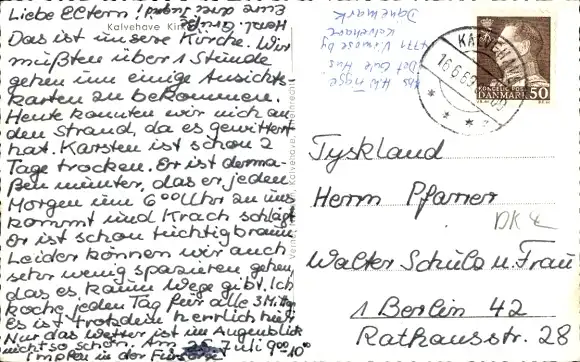 Liebe Eltern!
Kalvehave Kir
Das ist unsere Kirche. Wir
müßten über 1 Stunde
gehen um einige Ansichts-
karten zu bekommen.
Heute konnten wir nicht an
den Strand, da es gewittert
hat. Karsten ist schon 2
Tage trocken. Er ist derma-
ßen munter, das er jeden
Morgen um 6 00 Uhr zu uns
kommt und Krach schlägt.
Er ist schon tüchtig braun.
Leider können wir auch
sehr wenig spazieren gehen,
das es kaum Wege gibt. Ich
koche jeden Tag für alle 3 M.
Es ist trotzdem herrlich hier.
Nur das Wetter ist im Augenblick
nicht so schön. Am 25. Juli 9 00 - 10 00
Impfen in der
4771 Viemose by
Kalvehave
Danemark
KALVEHAVE
16.6.69
KONGELIG POST
DANMARK 50
Tyskland
Herrn Pfarrer
DK
Walter Schulz u. Frau
1 Berlin 42
Rathausstr. 28